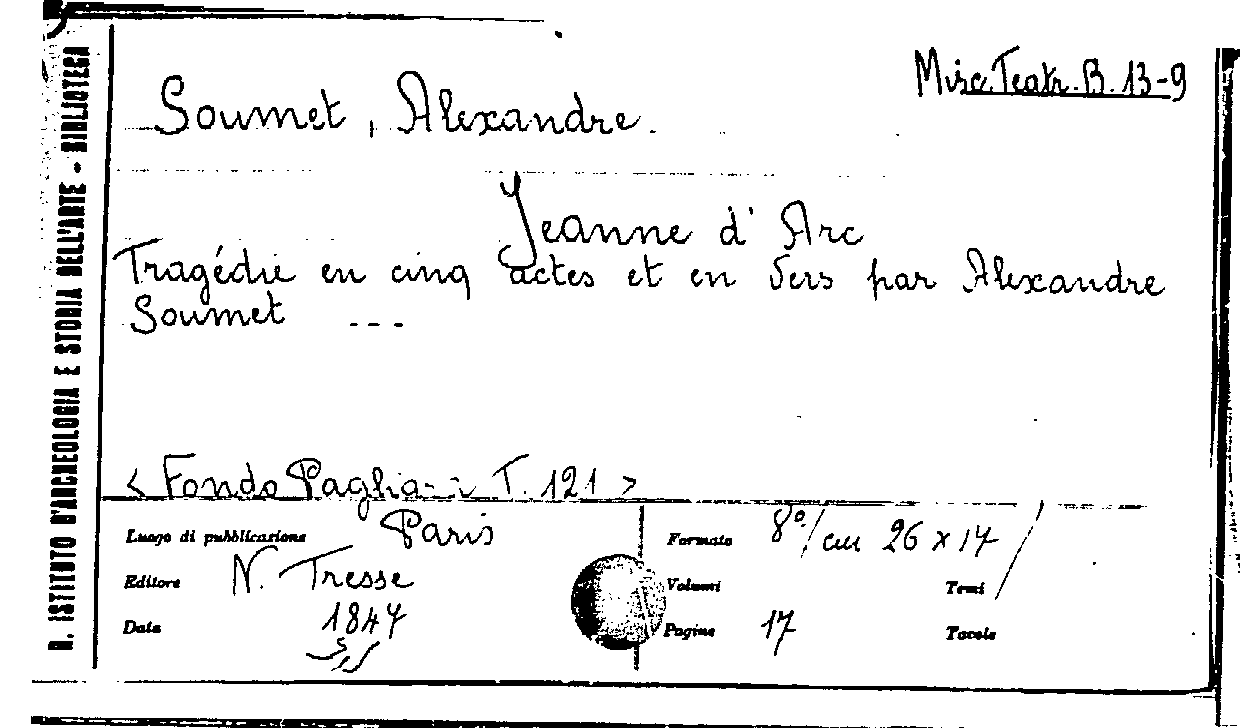 Misc. Teatr. B. 13-9
Soumet, Alexandre.
Jeanne d'Arc
Tragédie en cinq actes et en vers par Alexandre
Soumet ---
< Fondo T. 121 >
Luogo di pubblicazione Paris
Editore N. Tresse
Data 1847
Formato 8º/cm 26 x 17
Volumi
Tomi /
Pagine 17
Tavole
R. ISTITUTO D'ARCHEOLOGIA E STORIA DELL'ARTE - BIBLIOTECA